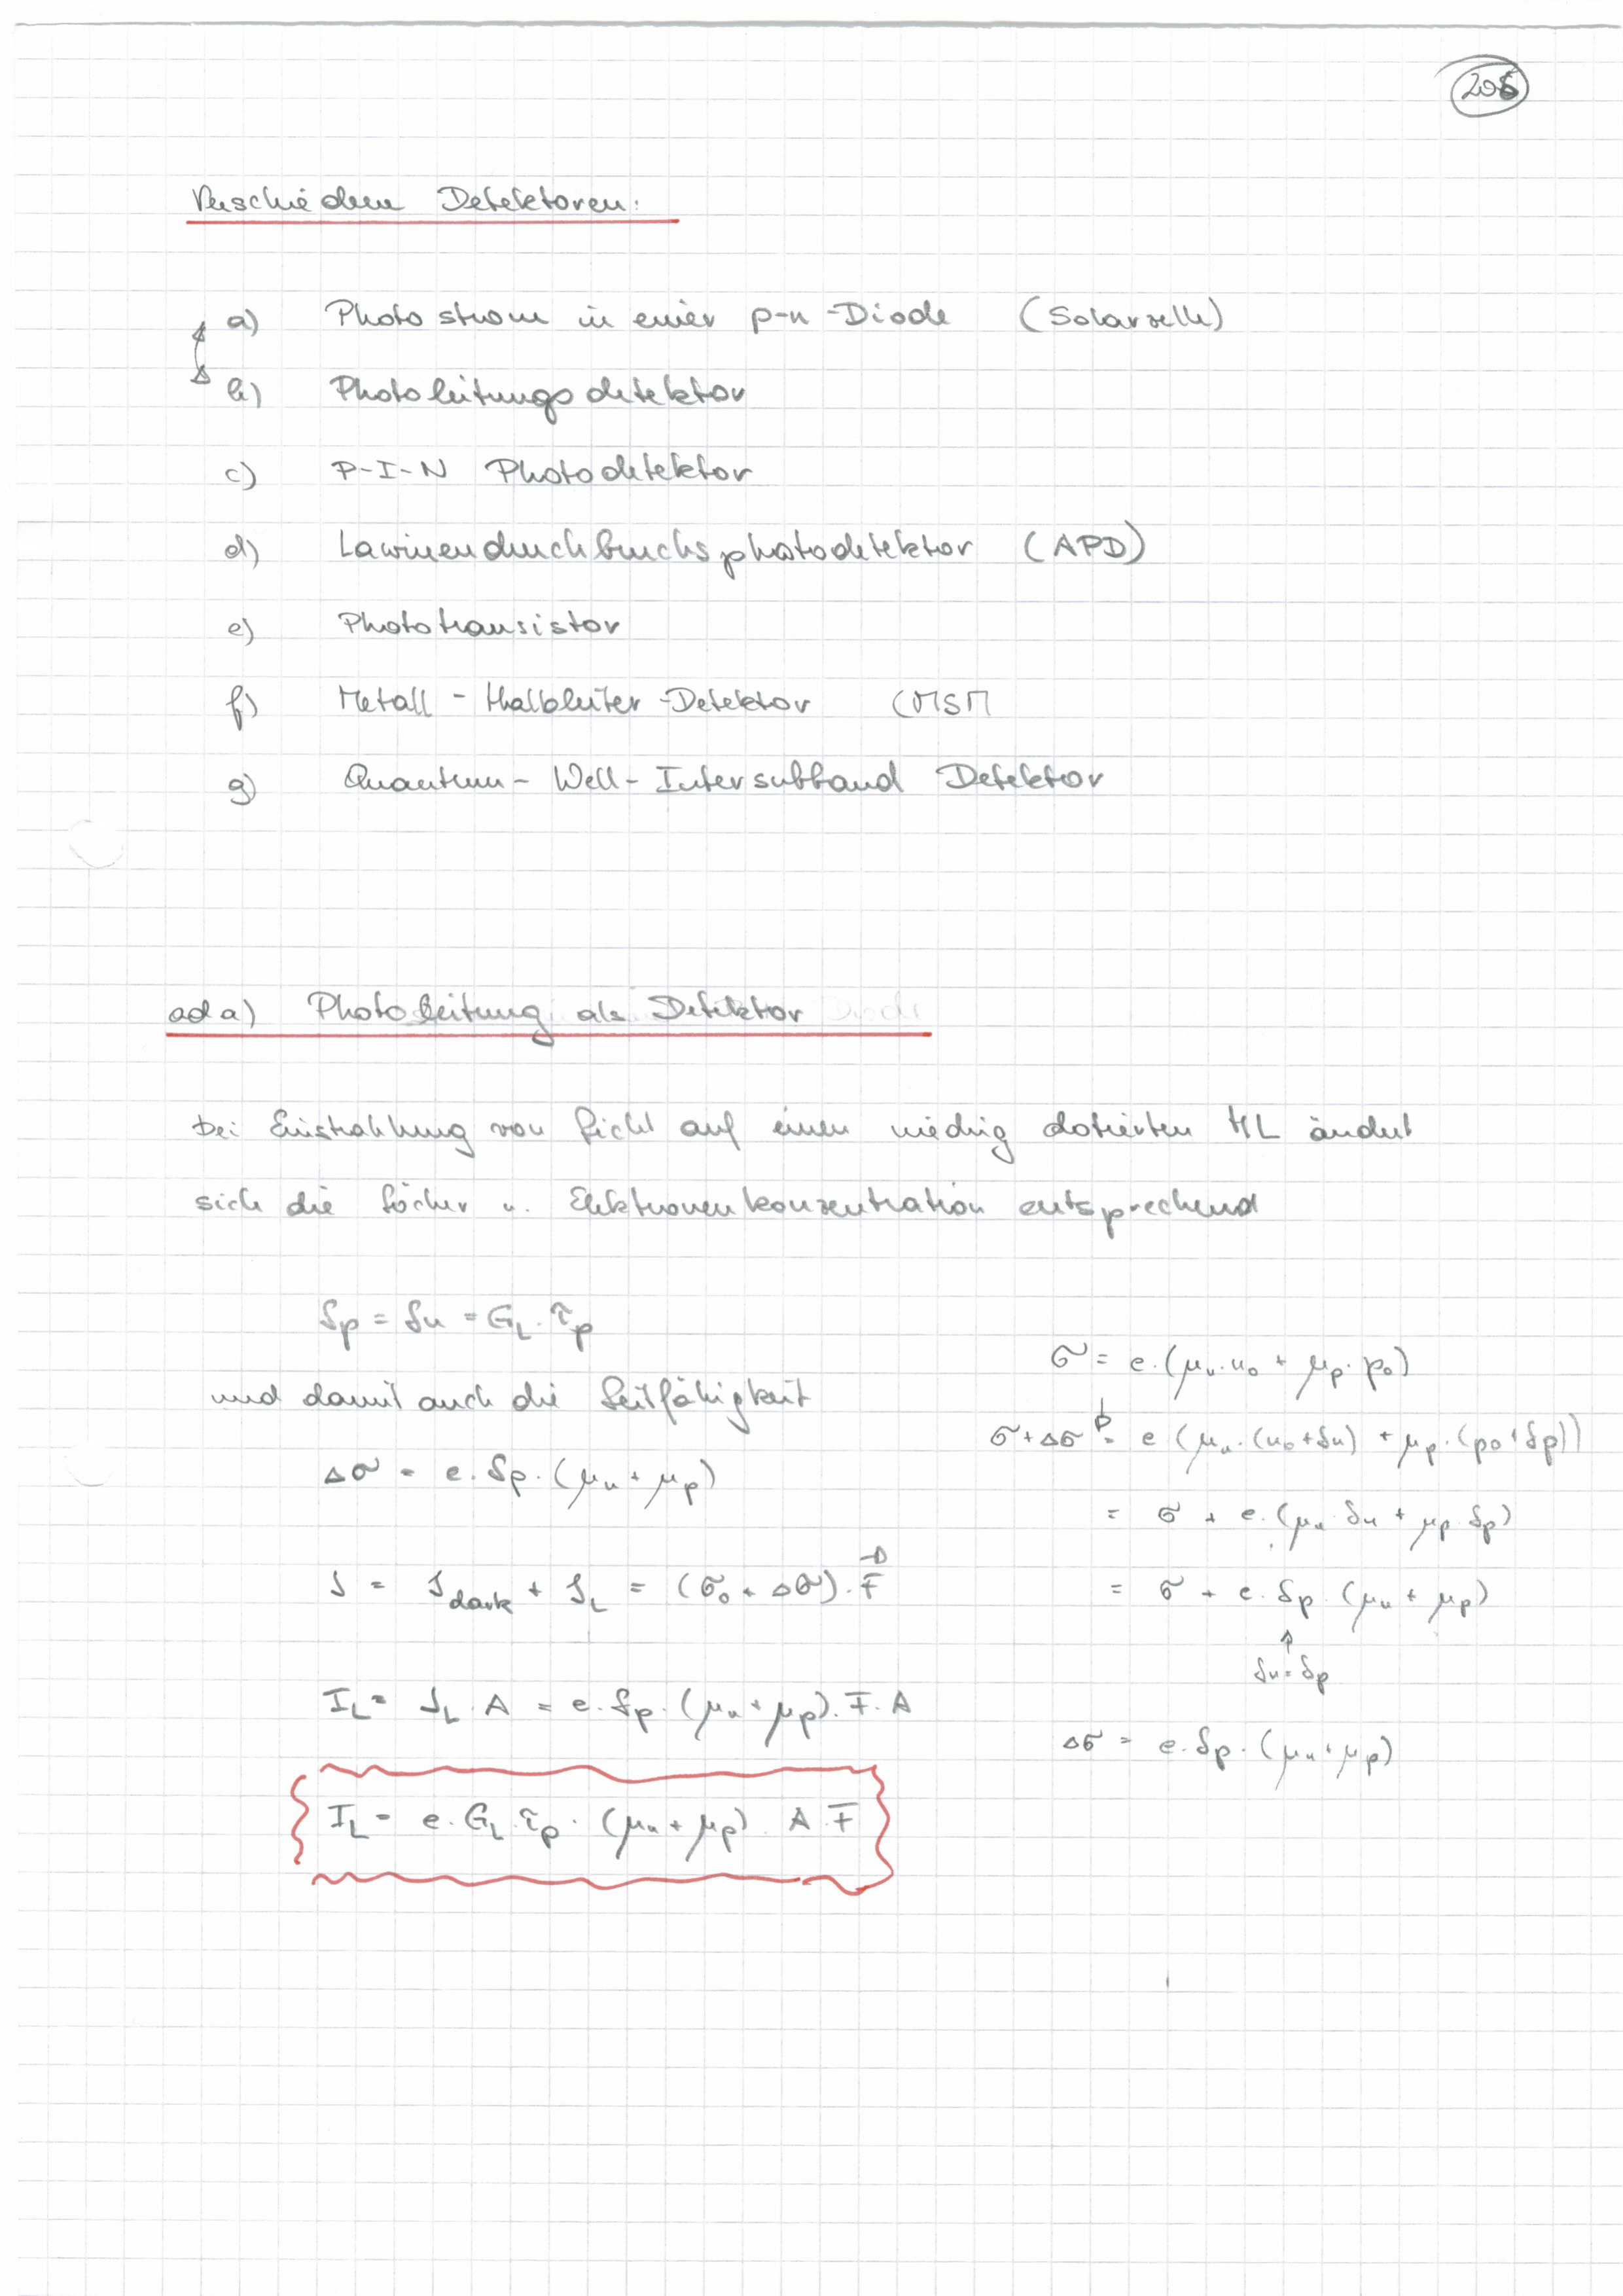 205
Verschiedene Detektoren:
a) Photostrom in einer p-n-Diode (Solarzelle)
b) Photoleitungsdetektor
c) P-I-N Photodetektor
d) Lawinendurchbruchsphotodetektor (APD)
e) Phototransistor
f) Metall-Halbleiter-Detektor (MSM
g) Quantum-Well-Intersubband Detektor
ad a) Photoleitung als Detektor
Bei Einstrahlung von Licht auf einen niedrig dotierten HL ändert
sich die Löcher u. Elektronenkonzentration entsprechend
δp = δn = G_L · τ_p
und damit auch die Leitfähigkeit
Δσ = e · δp · (μ_n + μ_p)
J = J_dark + J_L = (σ_0 + Δσ) · F⃗
I_L = J_L · A = e · δp · (μ_n + μ_p) · F · A
I_L = e · G_L · τ_p · (μ_n + μ_p) · A · F
σ = e · (μ_n · n_0 + μ_p · p_0)
σ + Δσ = e (μ_n · (n_0 + δn) + μ_p · (p_0 + δp))
= σ + e · (μ_n · δn + μ_p · δp)
= σ + e · δp · (μ_n + μ_p)
↑
δn = δp
Δσ = e · δp · (μ_n + μ_p)